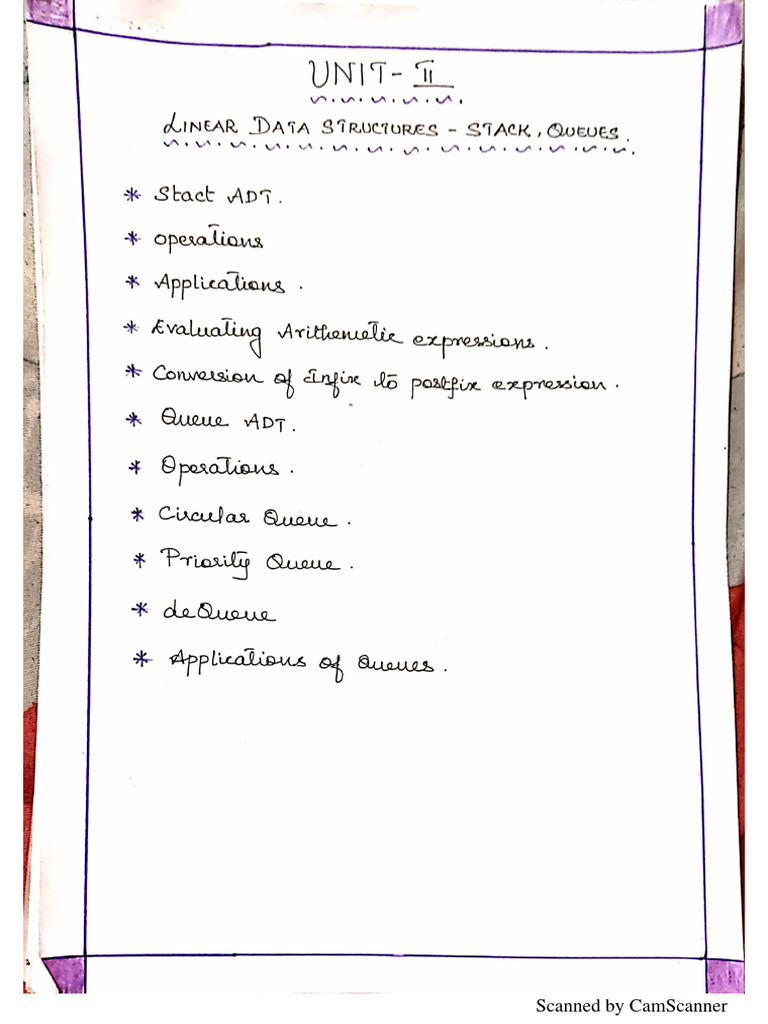 UNIT - II
LINEAR DATA STRUCTURES - STACK, QUEUES.
* Stact ADT.
* operations
* Applications.
* Evaluating Arithemetic expressions.
* Conversion of Infix to postfix expression.
* Queue ADT.
* Operations.
* Circular Queue.
* Priority Queue.
* deQueue
* Applications of Queues.
Scanned by CamScanner